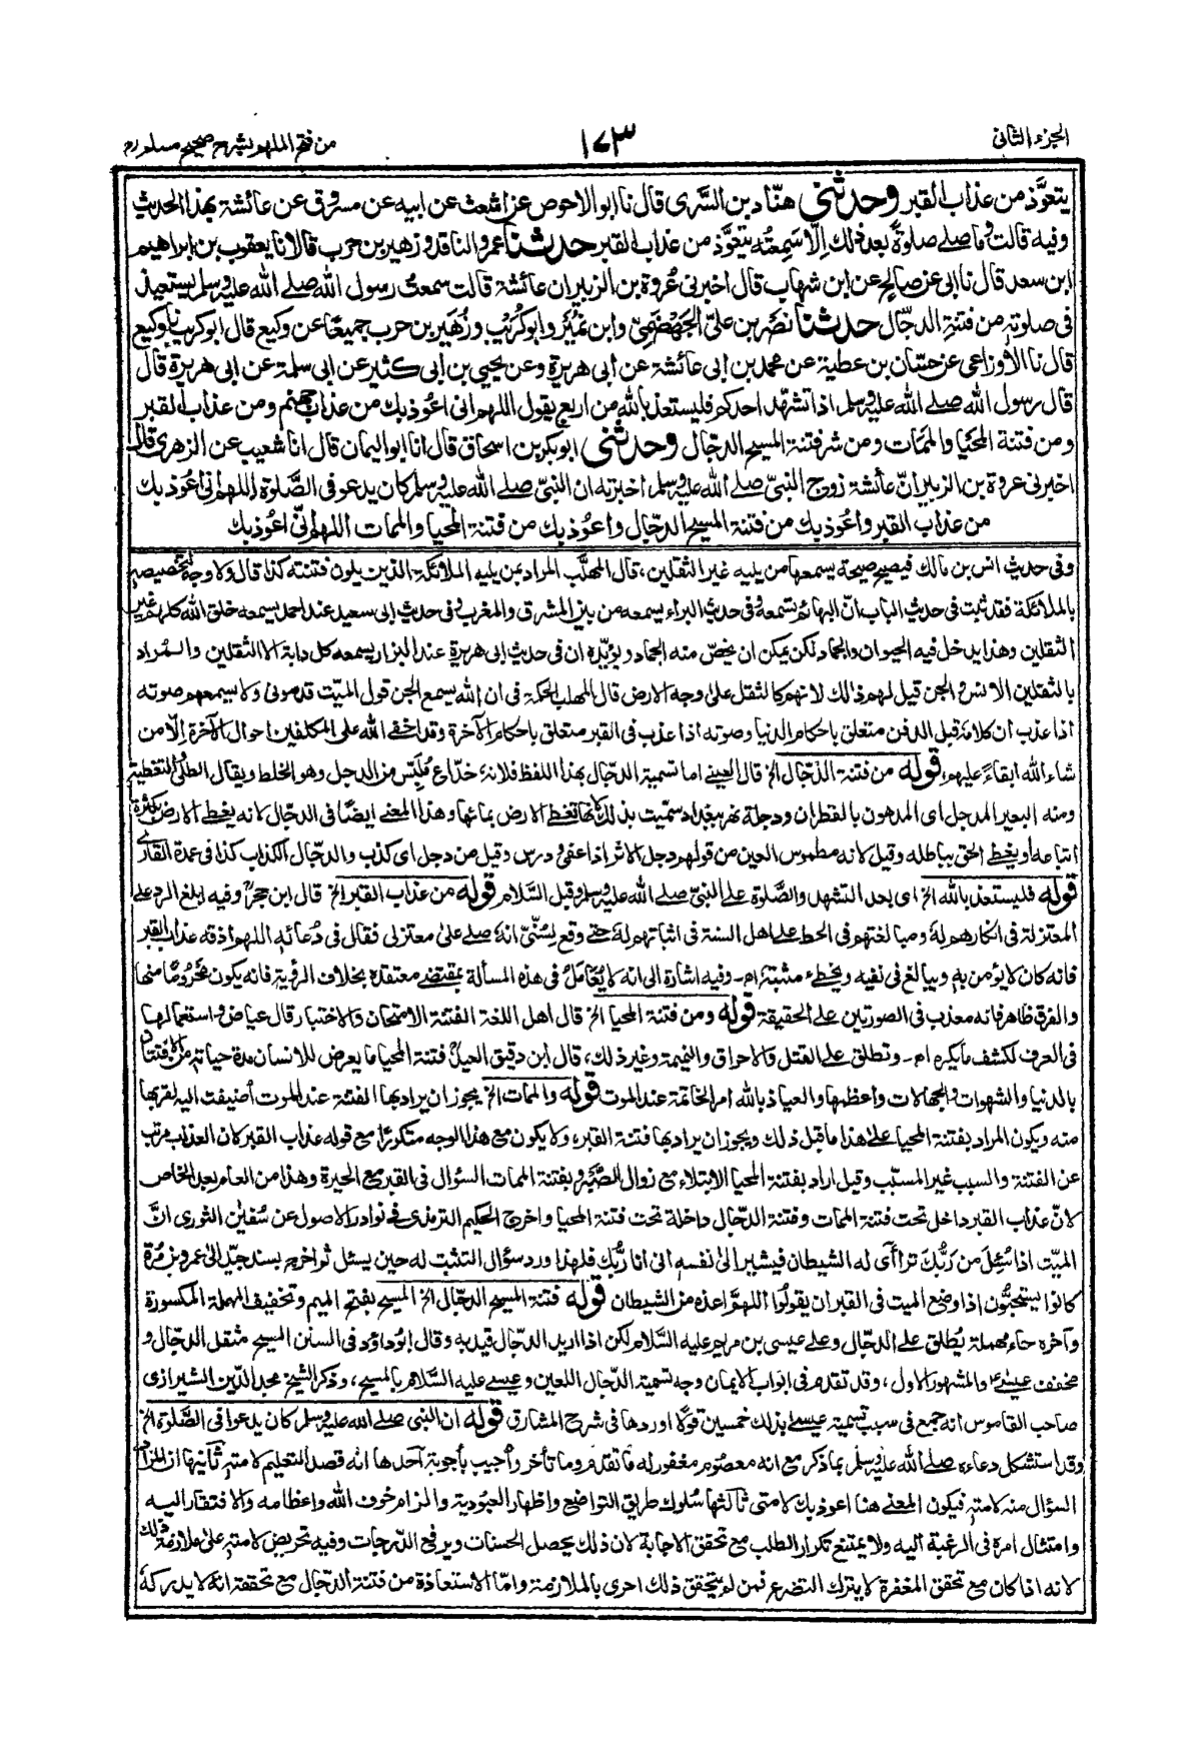 الجزء الثانی
١٧٣
من فتح الملهم بشرح صحیح مسلم
یتعوّذ من عذاب القبر وحدثنی هنّاد بن السَّری قال نا ابو الاحوص عن اشعث عن ابیه عن مسروق عن عائشة بهذا الحدیث
وفیه قالت وما صلے صلوةً بعد ذلك اِلّا سَمِعتُه یتعوَّذ من عذاب القبر حدثنا عمرو الناقد وزهیر بن حرب قالا نا یعقوب بن ابراهیم
ابن سعد قال نا ابی عن صالح عن ابن شهاب قال اخبرنی عُروة بن الزبیر ان عائشة قالت سمعتُ رسول الله صلے الله علیه وسلم یستعیذ
فی صلوته من فتنة الدجّال حدثنا نصر بن علیّ الجَهْضَمِیّ وابن نُمَیر وابو کُرَیْب وزُهَیر بن حرب جمیعًا عن وکیع قال ابو کریب نا وکیع
قال نا الأوزاعی عن حسّان بن عطیة عن محمد بن ابی عائشة عن ابی هریرة وعن یحیی بن ابی کثیر عن ابی سلمة عن ابی هریرة قال
قال رسول الله صلے الله علیه وسلم اذا تشهّد احدکم فلیستعذ بالله من اربع یقول اللهم انی اعُوذ بك من عذاب جهنم ومن عذاب القبر
ومن فتنة المحیَا والممَات ومن شر فتنة المسیح الدجال وحدثنی ابو بکر بن اسحاق قال انا ابو الیمان قال انا شعیب عن الزهری قال
اخبرنی عروة بن الزبیر انّ عائشة زوج النبیّ صلے الله علیه وسلم اخبرته ان النبیّ صلے الله علیه وسلم کان یدعو فی الصَّلوة اللهم انی اعُوذ بك
من عذاب القبر واعُوذ بك من فتنة المسیح الدجّال واعُوذ بك من فتنة المحیا والممات اللهم انّی اعُوذ بك
وفی حدیث انس بن مالك فیصیح صیحة یسمعها من یلیه غیر الثقلین، قال المهلَّب المراد بمن یلیه الملائکة الذین یلون فتنته کذا قال ولا وجه لتخصیصه
بالملائکة فقد ثبت فی حدیث الباب انّ البهائم تسمعه وفی حدیث البراء یسمعه من بین المشرق والمغرب وفی حدیث ابی سعید عند احمد یسمعه خلق الله کلهم غیر
الثقلین وهذا یدخل فیه الحیوان والجماد لکن یمکن ان یخصّ منه الجماد ویؤیّده ان فی حدیث ابی هریرة عند البزار یسمعه کل دابة الا الثقلین والمُراد
بالثقلین الانس والجن قیل لهم ذالك لانهم کالثقل علی وجه الارض قال المهلب الحکمة فی ان الله یسمع الجن قول المیّت قدمونی ولا یسمعهم صوته
اذا عذب ان کلامَهٗ قبل الدفن متعلق باحکام الدنیا وصوته اذا عذب فی القبر متعلق باحکام الآخرة وقد اخفی الله علی المکلفین احوال الآخرة اِلّا من
شاء الله ابقاءً علیهم، قوله من فتنة الدّجّال الخ قال العینی اما تسمیة الدجّال بهذا اللفظ فلانهٗ خدّاع مُلَبِّس من الدجل وهو الخلط ویقال الطلی والتغطیة
ومنه البعیر المدجل ای المدهون بالقطران ودجلة نهر بغداد سمّیت بذلك لانها تغطی الارض بمائها وهذا المعنی ایضًا فی الدجّال لانه یغطی الارض بکثرة
اتباعه او یغطی الحق بباطله وقیل لانه مطموس العین من قولهم دجل الاثر اذا عفی ودرس وقیل من دجل ای کذب والدجّال الکذاب کذا فی عمدة القاری
قوله فلیستعذ بالله الخ ای بعد التشهد والصَّلوة علی النبیّ صلے الله علیه وسلم وقبل السَّلام قوله من عذاب القبر الخ قال ابن حجرؒ وفیه ابلغ الرد علی
المعتزلة فی انکارهم لهٗ ومبالغتهم فی الحط علی اهل السنة فی اثباتهم له حتی وقع لِسُنّیّ انهٗ صلے علی معتزلی فقال فی دُعائهٖ اللهم اذقه عذاب القبر
فانه کان لا یؤمن به ویبالغ فی نفیه ویخطیء مثبتهٗ اه۔ وفیه اشارة الی انه لا یُعَامَلُ فی هذه المسألة بمقتضی معتقده بخلاف الرؤیة فانه یکون محرُومًا منها
والفرق ظاهر فانه معذب فی الصورتین علی الحقیقة قوله ومن فتنة المحیا الخ قال اهل اللغة الفتنة الامتحان والاختبار قال عیاض واستعمالها
فی العرف لکشف ما یکره اه۔ وتطلق علی القتل والاحراق والنمیمة وغیر ذلك، قال ابن دقیق العیدؒ فتنة المحیا ما یعرض للانسان مدة حیاته من الافتتان
بالدنیا والشهوات والجهالات واعظمها والعیاذ بالله امر الخاتمة عند الموت قوله والممات الخ یجوز ان یراد بها الفتنة عند الموت اُضیفت الیه لقربها
منه ویکون المراد بفتنة المحیا علی هذا ما قبل ذلك ویجوز ان یراد بها فتنة القبر، ولا یکون مع هذا الوجه متکررًا مع قوله عذاب القبر لان العذاب مرتب
عن الفتنة والسبب غیر المسبّب وقیل اراد بفتنة المحیا الابتلاء مع زوال الصّبر وبفتنة الممات السؤال فی القبر مع الحیرة وهذا من العام بعد الخاص
لانّ عذاب القبر داخل تحت فتنة الممات وفتنة الدجّال داخلة تحت فتنة المحیا واخرج الحکیم الترمذی فی نوادر الاصول عن سُفیان الثوری انَّ
المیّت اذا سُئِلَ من رَبُّكَ تراأٰی له الشیطان فیشیر الی نفسه انی انا ربُّك فلهذا ورد سؤال التثبت له حین یسئل ثم اخرج بسند جیّد الی عمرو بن مُرّة
کانوا یستحبُّون اذا وضع المیت فی القبر ان یقولُوا اللهُمَّ اعذه من الشیطان قوله فتنة المسیح الدجّال الخ المسیح بفتح المیم وتخفیف المهملة المکسورة
وآخره حاء مهملة یُطلق علی الدجّال وعلی عیسی بن مریم علیه السَّلام لکن اذا ارید الدجّال قید به وقال ابُو داؤد فی السنن المسیح مثقل الدجّال و
مخفف عیسٰی والمشهور الاول، وقد تقدم فی ابواب الایمان وجه تسمیة الدجّال اللعین وعیسی علیه السَّلام بالمسیح، وذکر الشیخ مجد الدّین الشیرازی
صاحب القاموس انه جمع فی سبب تسمیة عیسی بذلك خمسین قولًا اوردها فی شرح المشارق قوله ان النبی صلے الله علیه وسلم کان یدعوا فی الصَّلوة الخ
وقد استشکل دعاءه صلے الله علیه وسلم بما ذکر مع انه معصوم مغفور له ما تقدم وما تأخر واُجیب بأجوبة احدها انه قصد التعلیم لامته ثانیها ان المراد
السؤال منه لامته فیکون المعنی هنا اعوذ بك لامتی ثالثها سُلوك طریق التواضع واظهار العبُودیة والزام خوف الله واعظامه والافتقار الیه
وامتثال امره فی الرغبة الیه ولا یمتنع تکرار الطلب مع تحقق الاجابة لان ذلك یحصل الحسنات ویرفع الدّرجات وفیه تحریض لامته علی ملازمة ذلك
لانه اذا کان مع تحقق المغفرة لا یترك التضرع فمن لم یتحقق ذلك احری بالملازمة وامّا الاستعاذة من فتنة الدجّال مع تحققه انهٗ لا یدرکهٗ